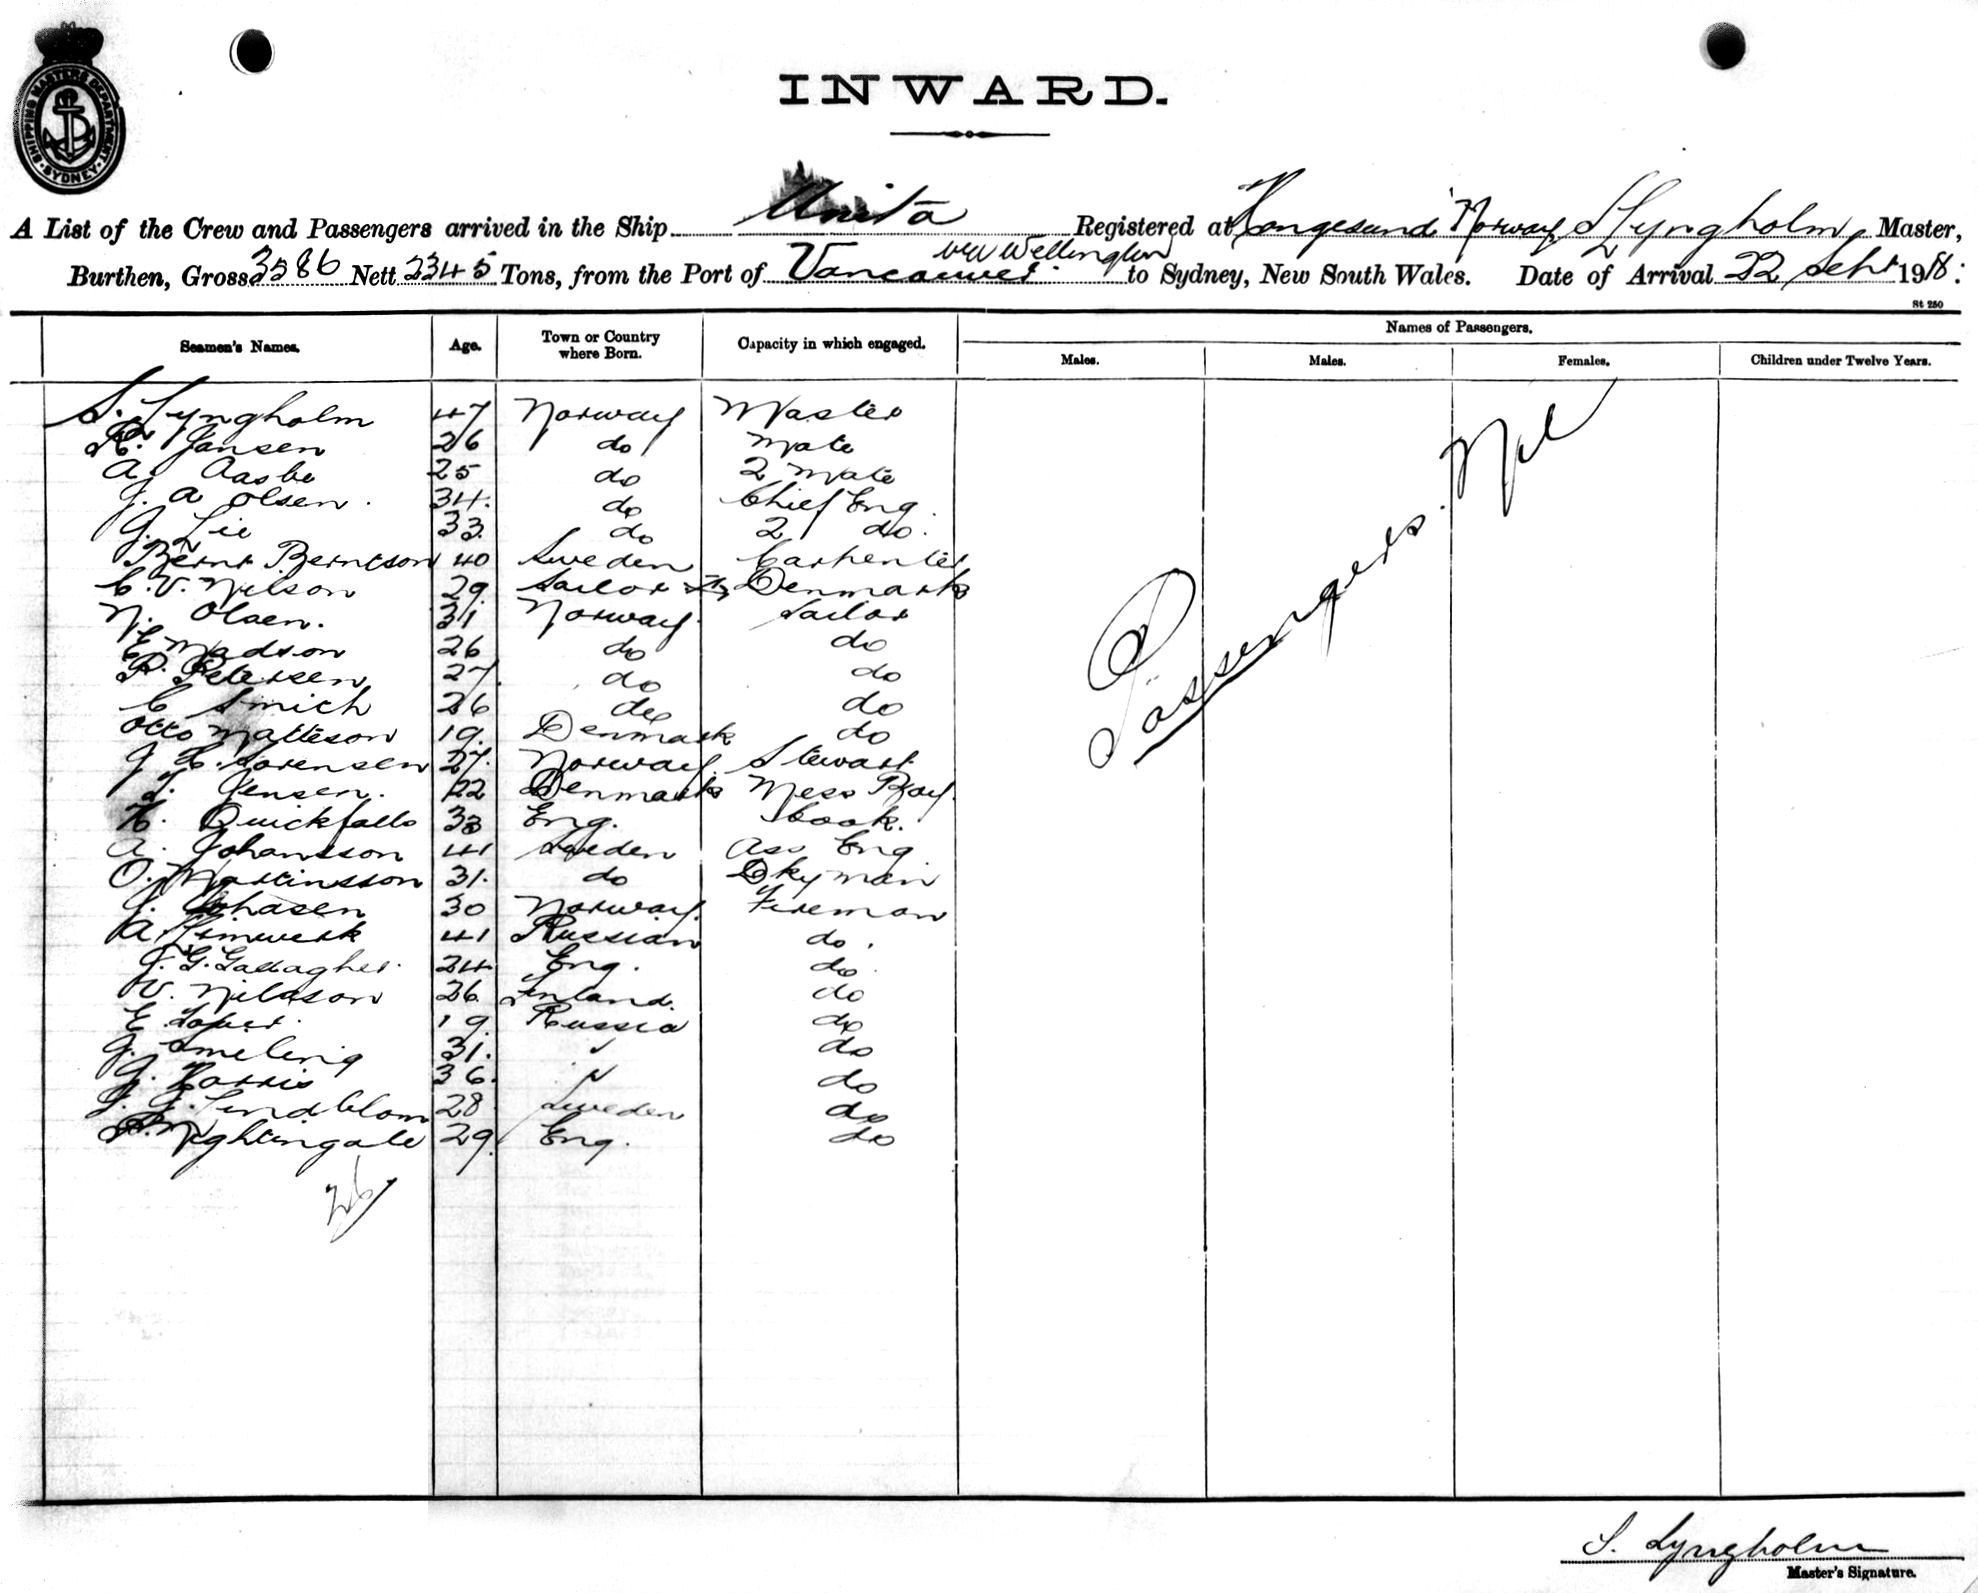 SHIPPING MASTERS DEPARTMENT SYDNEY
INWARD.
A List of the Crew and Passengers arrived in the Ship Unita Registered at Haugesund Norway, S Lyngholm, Master,
via Wellington
Burthen, Gross 3586 Nett 2345 Tons, from the Port of Vancouver to Sydney, New South Wales. Date of Arrival 22 Sept 1918:
St 250
Seamen's Names. Age. Town or Country where Born. Capacity in which engaged. Names of Passengers.
Males. Males. Females. Children under Twelve Years.
S. Lyngholm 47 Norway Master
Jansen 26 do Mate
A. Aasbe 25 do 2 Mate
J. A Olsen. 34. do Chief Eng.
J. Lie 33. do 2 do.
Bernt Berntson 40 Sweden Carpenter
C. V. Nilson 29 Sailor Denmark
N. Olsen. 31 Norway. Sailor
E Madson 26 do do
P. Petersen 27 do do
C Smith 26 do do
Otto Matteson 19. Denmark do
J C. Sorensen 27. Norway. Stewart
Jensen. 22 Denmark Mess Boy.
H. Quickfalls 33 Eng. Cook.
A. Johansson 41 Sweden Ass Eng
O. Martinsson 31. do Dkyman
30 Norway. Fireman
A. 41 Russian do.
J. G. Gallagher. 24 Eng. do.
V. Nilsson 26 Finland. do
E. 19 Russia do
J. Smeling 31. " do
J. Harris 36. " do
J. J. Lindblom 28 Sweden do
Nightingale 29. Eng. do
26
Passengers. Nil
S. Lyngholm
Master's Signature.